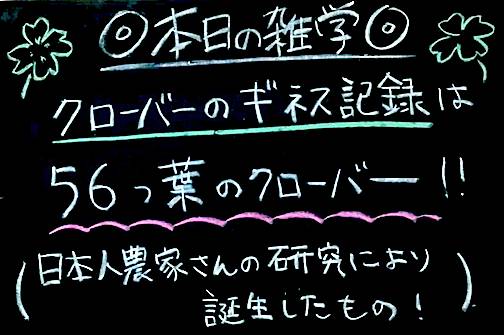 ◎本日の雑学◎
クローバーのギネス記録は
56っ葉のクローバー!!
(日本人農家さんの研究により
誕生したもの!)